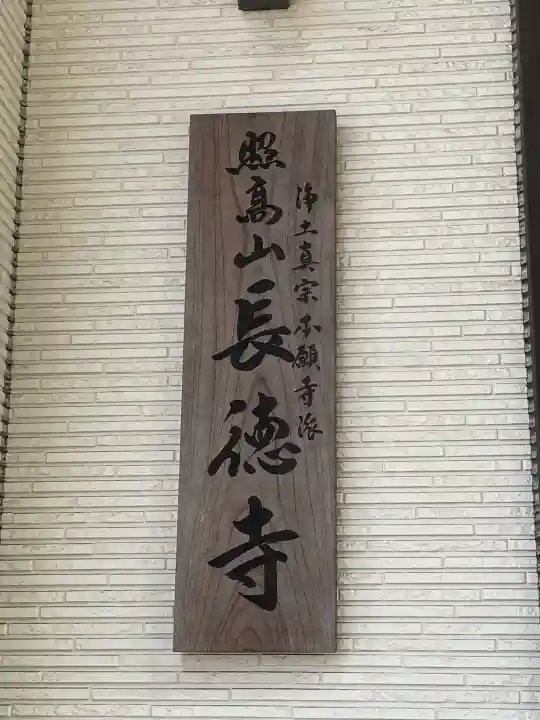 浄土真宗本願寺派
照高山長徳寺